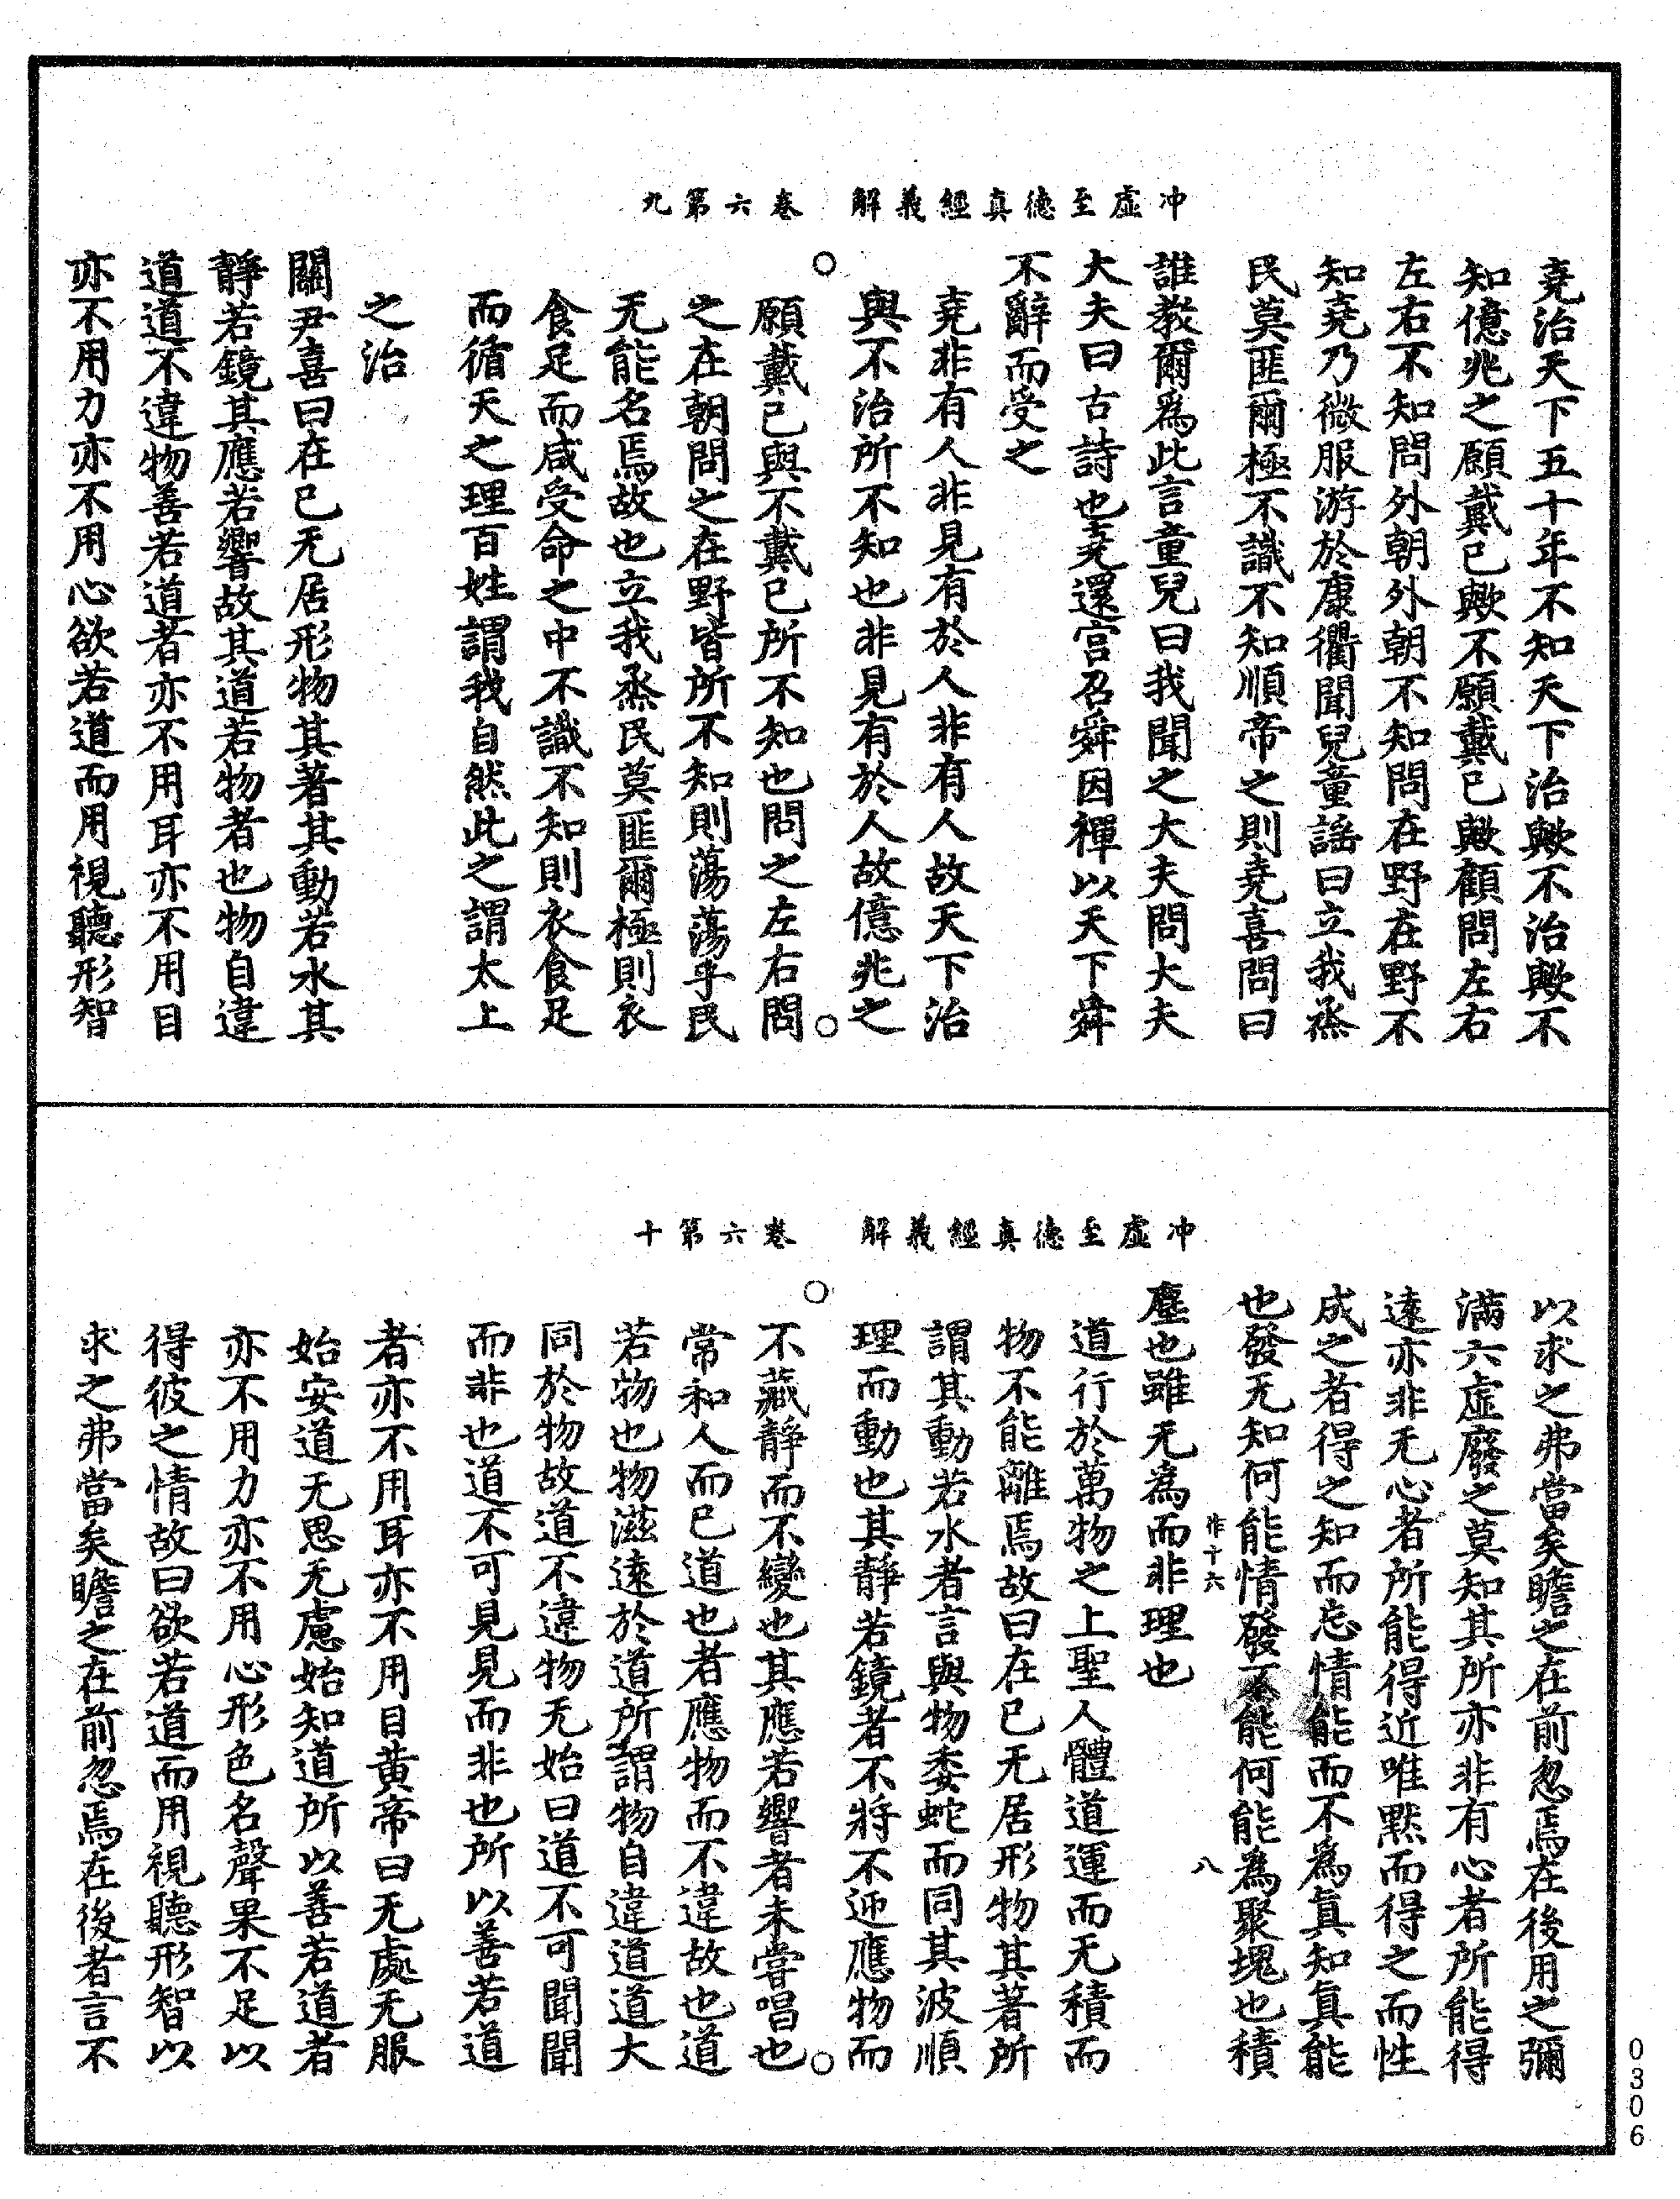 冲虛至德真經義解　卷六第九
堯治天下五十年不知天下治歟不治歟不
知億兆之願戴已歟不願戴已歟顧問左右
左右不知問外朝外朝不知問在野在野不
知堯乃微服游於康衢聞兒童謠曰立我烝
民莫匪爾極不識不知順帝之則堯喜問曰
誰教爾爲此言童兒曰我聞之大夫問大夫
大夫曰古詩也堯還宮召舜因禪以天下舜
不辭而受之
堯非有人非見有於人非有人故天下治
與不治所不知也非見有於人故億兆之
願戴已與不戴已所不知也問之左右問
之在朝問之在野皆所不知則蕩蕩乎民
无能名焉故也立我烝民莫匪爾極則衣
食足而咸受命之中不識不知則衣食足
而循天之理百姓謂我自然此之謂太上
之治
關尹喜曰在已无居形物其著其動若水其
靜若鏡其應若響故其道若物者也物自違
道道不違物善若道者亦不用耳亦不用目
亦不用力亦不用心欲若道而用視聽形智
冲虛至德真經義解　卷六第十
以求之弗當矣瞻之在前忽焉在後用之彌
滿六虛廢之莫知其所亦非有心者所能得
遠亦非无心者所能得近唯黙而得之而性
成之者得之知而忘情能而不爲真知真能
也發无知何能情發不能何能爲聚塊也積
作十六　八
塵也雖无爲而非理也
道行於萬物之上聖人體道運而无積而
物不能離焉故曰在已无居形物其著所
謂其動若水者言與物委蛇而同其波順
理而動也其靜若鏡者不將不迎應物而
不藏靜而不變也其應若響者未嘗唱也
常和人而已道也者應物而不違故也道
若物也物滋遠於道所謂物自違道道大
同於物故道不違物无始曰道不可聞聞
而非也道不可見見而非也所以善若道
者亦不用耳亦不用目黄帝曰无處无服
始安道无思无慮始知道所以善若道者
亦不用力亦不用心形色名聲果不足以
得彼之情故曰欲若道而用視聽形智以
求之弗當矣瞻之在前忽焉在後者言不
0306